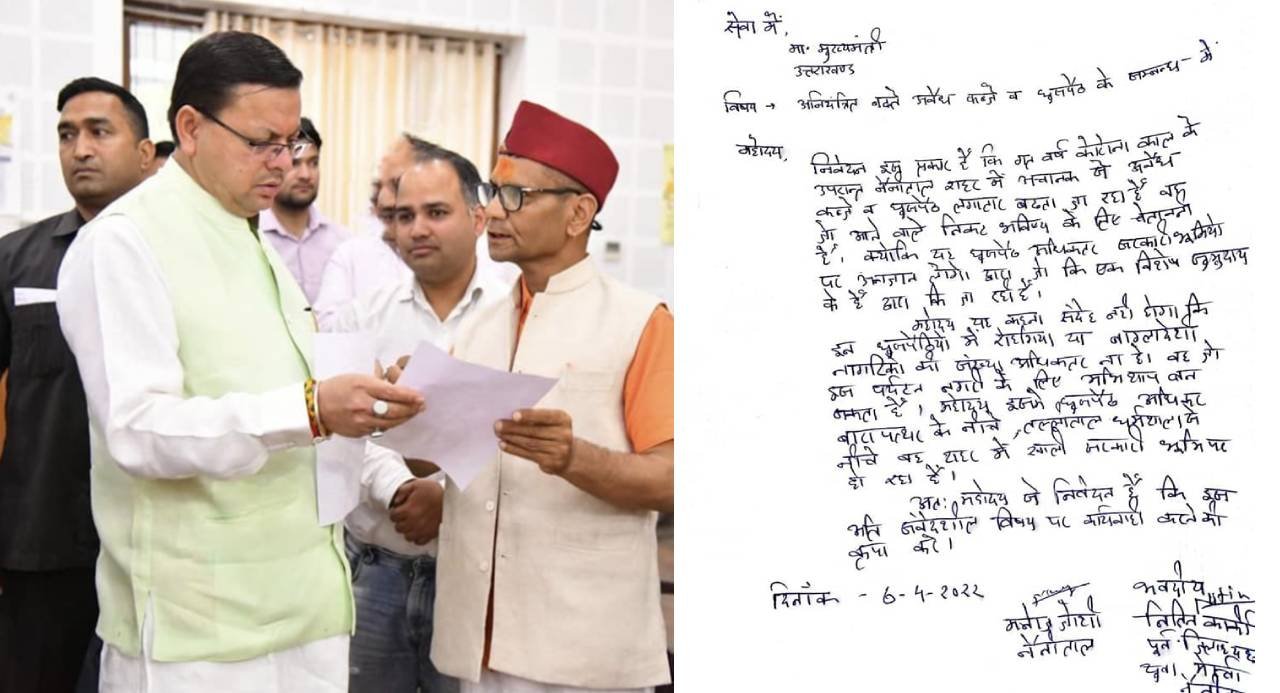 सेवा में,
मा. मुख्यमंत्री
उत्तराखण्ड
विषय → अनियंत्रित बढते अवैध कब्जे व घुसपैठ के सम्बन्ध में
महोदय,
निवेदन इस प्रकार है कि गत वर्ष कोरोना काल के
उपरान्त नैनीताल शहर में अचानक से अवैध
कब्जे व घुसपैठ लगातार बढता जा रहा है वह
जो आने वाले निकट भविष्य के लिए चेतावनी
है, क्योकि यह घुसपैठ अधिकतर सरकारी भूमियो
पर अनजान लोगो द्वारा जो कि एक विशेष समुदाय
के है द्वारा कि जा रही है।
महोदय यह कहना संदेह नही होगा कि
इन घुसपैठियो में रोहंगिया या बांग्लादेशी
नागरिको की संख्या अधिकतर ना हो। वह जो
इस पर्यटन नगरी के लिए अभिशाप बन
सकता है। महोदय इसमें घुसपैठ अधिकतर
बारापत्थर के नीचे, तल्लीताल धर्मशाला के
नीचे वह शहर में खाली सरकारी भूमि पर
हो रहा है।
अतः महोदय से निवेदन है कि इस
अति संवेदशील विषय पर कार्यवाही करने की
कृपा करे।
दिनांक - 6-4-2022
भवदीय
मनोज जोशी
नैनीताल
नितिन कार्की
पूर्व जिलाध्यक्ष
युवा मोर्चा